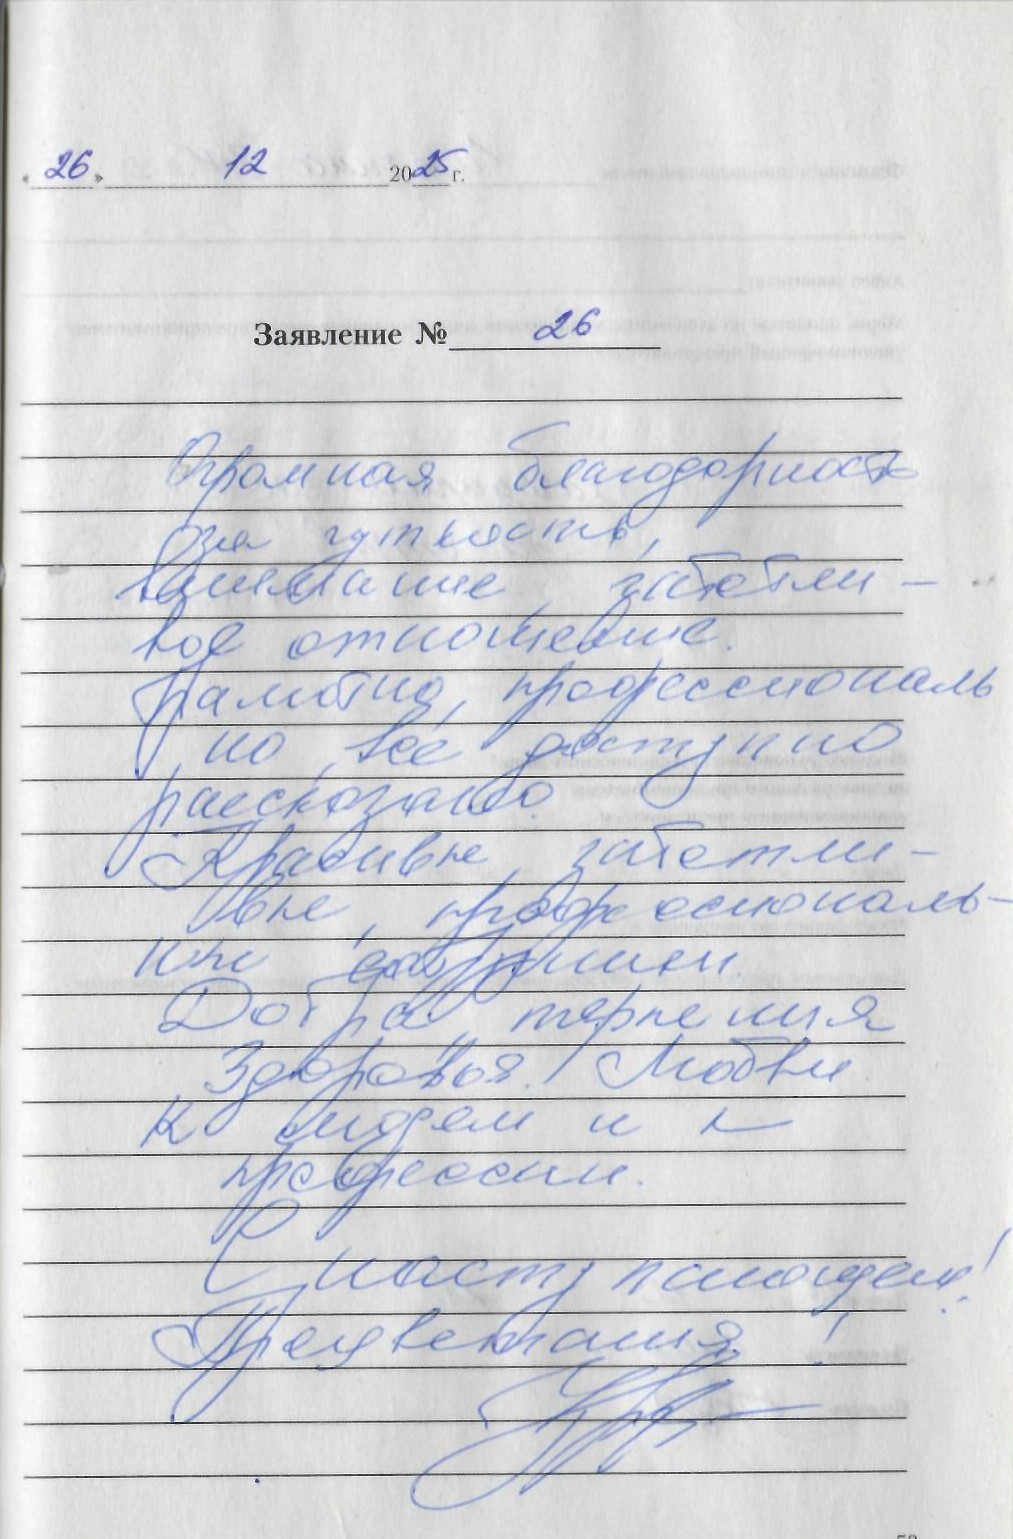 «26» 12 2025 г.
Заявление № 26
Огромная благодарность
за чуткость,
внимание, заботли-
вое отношение.
Грамотно, профессиональ
но, всё доступно
рассказано.
Красивые, заботли-
вые, профессиональ-
ные сотрудники.
Добра, терпения
Здоровья! Любви
к людям и к
профессии.
С наступающим!
Процветания!